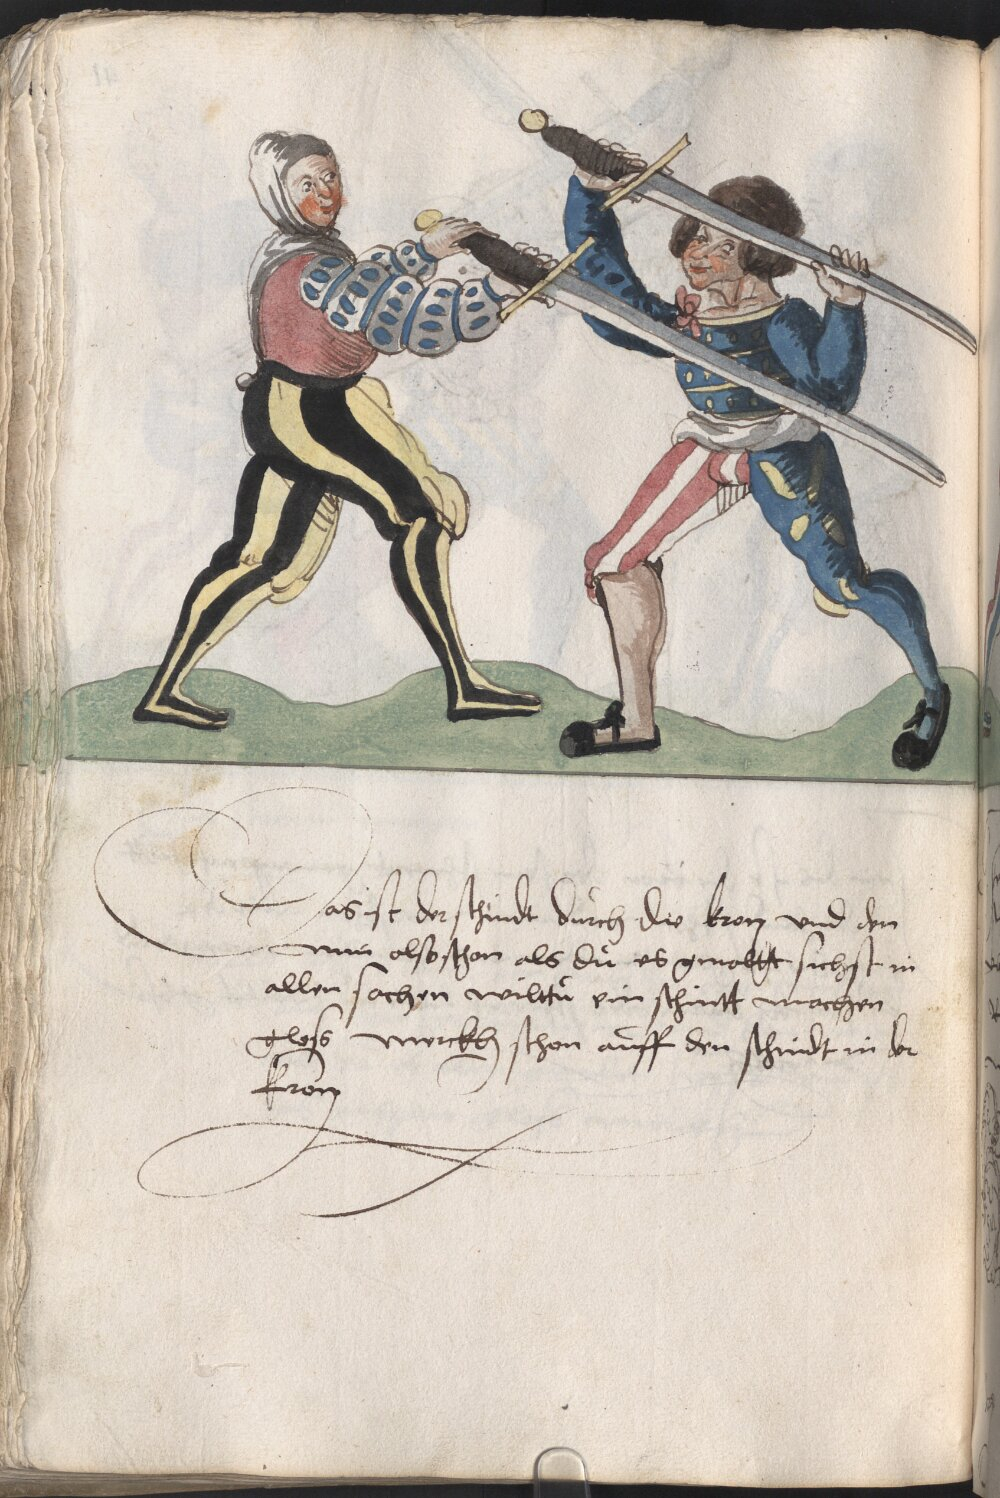 Das ist der schnidt durch die kron und den
nim also schon als du es gmaltt sichst in
allen sachen wilttu ein schnitt machen
merckh schon auff den schnidt in der
kron